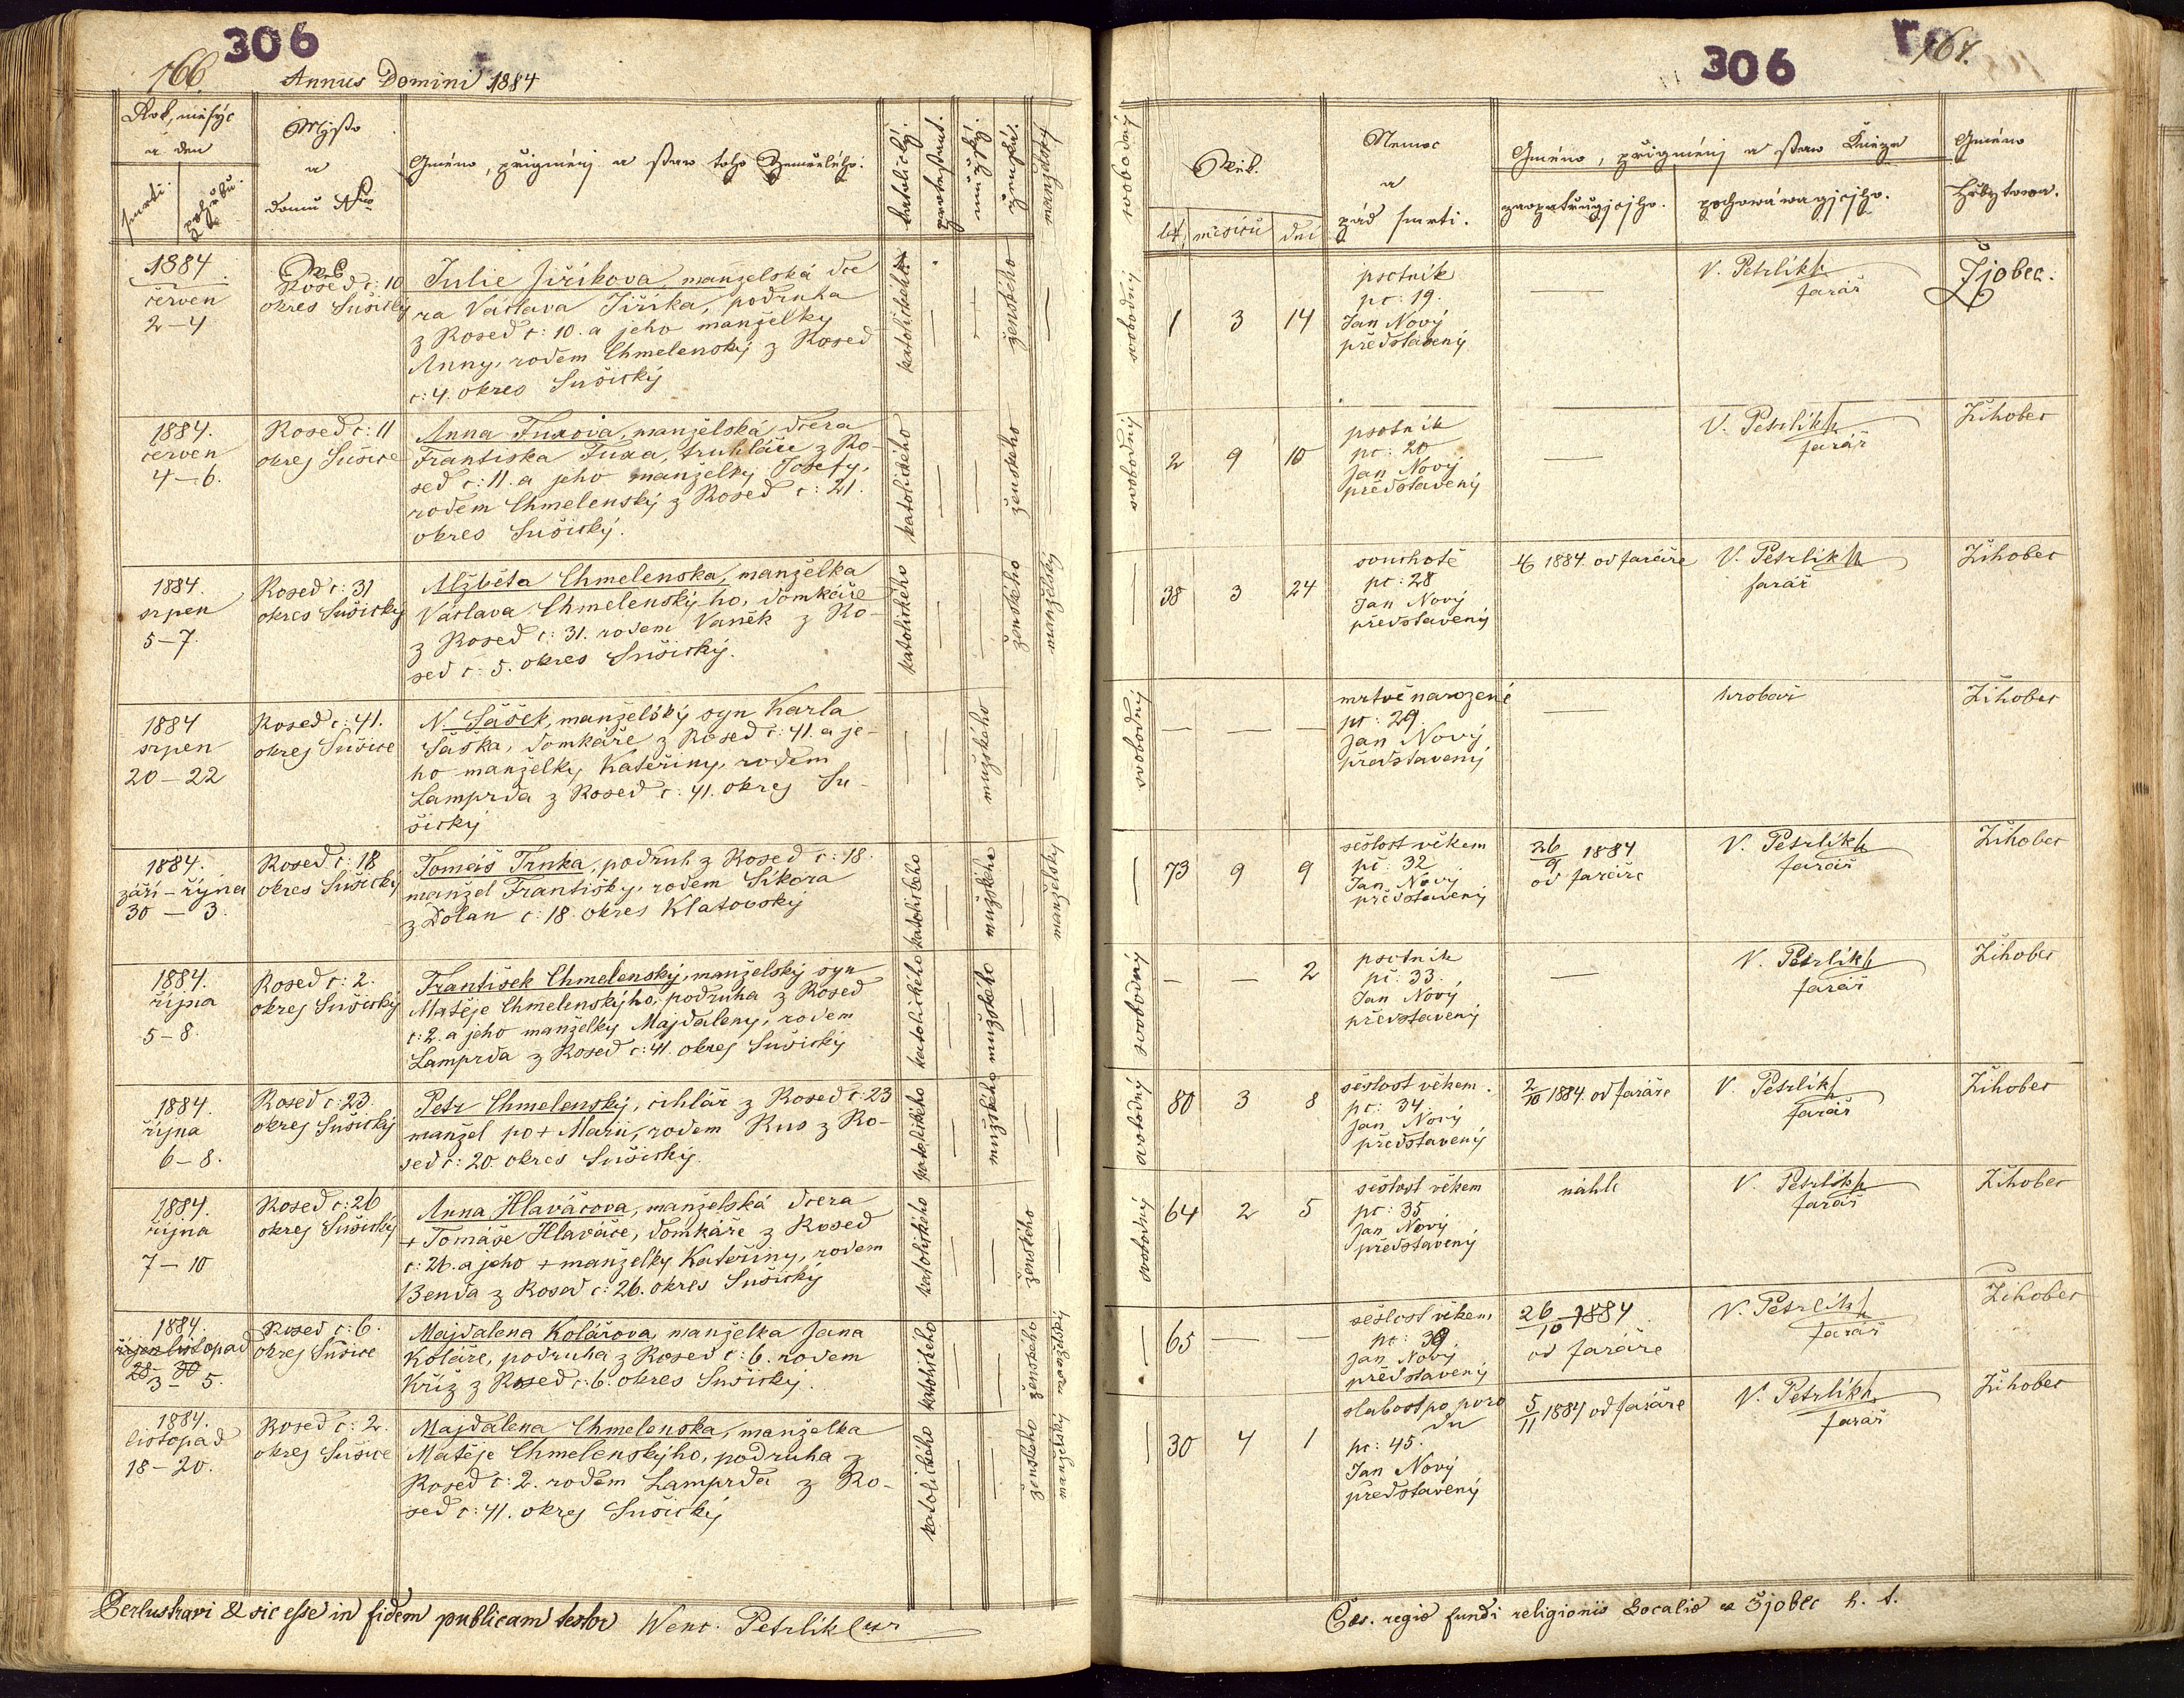 306
166.
Annus Domini 1884
Rok, měsýc
a den
smrti.
pohřbu.
Mjsto
a
domu Nro
Gméno, přigménj a staw toho Zemřelého.
katolický.
protestant.
mužský.
ženská.
manželský
1884
červen
2–4
Rosed č: 10
okres Sušický
Julie Jiříkova, manzelská dce
ra Václava Jiříka, podruha
z Rosed č: 10. a jeho manželky
Anny, rodem Chmelenský z Rosed
č: 4. okres Sušický
katolického
—
—
ženského
—
1884.
červen
4–6.
Rosed č: 11
okres Sušice
Anna Fuxova, manželská dcera
Frantiska Fuxa, truhláře z Ro-
sed č: 11. a jeho manželky Josefy,
rodem Chmelenský z Rosed č: 21.
okres Sušický.
katolického
—
—
ženského
—
1884.
srpen
5–7.
Rosed č: 31
okres Sušický
Alžběta Chmelenska, manželka
Václava Chmelenský-ho, domkáře
z Rosed č: 31. rodem Vaněk z Ro-
sed č: 5. okres Sušický.
katolického
—
—
ženského
manželský
1884
srpen
20–22
Rosed č: 41.
okres Sušice
N. Šášek, manželský syn Karla
Šáška, domkáře z Rosed č: 41. a je-
ho manželky Kateřiny, rodem
Lamprda z Rosed č: 41. okres Su-
šický
—
—
mužského
—
—
1884.
září – října
30 – 3.
Rosed č: 18
okres Sušický
Tomáš Trnka, podruh z Rosed č: 18.
manžel Františky, rodem Sikora
z Dolan č: 18. okres Klatovský
katolického
—
mužského
—
manželský
1884.
října
5–8.
Rosed č: 2.
okres Sušický
František Chmelenský, manželský syn
Matěje Chmelenskýho, podruha z Rosed
č: 2. a jeho manželky Majdaleny, rodem
Lamprda z Rosed č: 41. okres Sušický
katolického
—
mužského
—
—
1884.
října
6–8.
Rosed č: 23.
okres Sušický
Petr Chmelenský, cihlář z Rosed č: 23
manžel po + Marii, rodem Rus z Ro-
sed č: 20. okres Sušický.
katolického
—
mužského
—
—
1884.
října
7–10
Rosed č: 26
okres Sušický
Anna Hlaváčova, manželská dcera
+ Tomáše Hlaváče, domkáře z Rosed
č: 26. a jeho + manželky Kateřiny, rodem
Benda z Rosed č: 26. okres Sušický
katolického
—
—
ženského
—
1884.
říjen listopad
28 – 30
3 – 5.
Rosed č: 6.
okres Sušice
Majdalena Kolářova, manželka Jana
Koláře, podruha z Rosed č: 6. rodem
Kříž z Rosed č: 6. okres Sušický.
katolického
—
—
ženského
manželský
1884.
listopad
18–20.
Rosed č: 2.
okres Sušice
Majdalena Chmelenska, manželka
Matěje Chmelenskýho, podruha z
Rosed č: 2. rodem Lamprda z Ro-
sed č: 41. okres Sušický
katolického
—
—
ženského
manželský
Perlustravi & sic esse in fidem publicam testor Wenc. Petrlik
306
167.
svobodný
Wěk.
let
měsíců
dní
Nemoc
a
pád smrti.
Gméno, přigménj a staw Kněze
zaopatřugjcjho.
pochowáwagjcjho.
Gméno
hřbytowa.
svobodný
1
3
14
psotník
pč: 19.
Jan Nový
představený
—
V. Petrlik
farář
Žjobec.
svobodný
2
9
10
psotník
pč: 20
Jan Nový
představený
—
V. Petrlik
farář
Žihobec
—
38
3
24
souchotě
pč: 28
Jan Nový
představený
4/8 1884. od faráře
V. Petrlik
farář
Žihobec
svobodný
—
—
—
mrtvě narozené
pč: 29.
Jan Nový
představený
—
hrobař
Žihobec
—
73
9
9
sešlost věkem
pč: 32
Jan Nový
představený
26/9 1884
od faráře
V. Petrlik
farář
Žihobec
svobodný
—
—
2
psotník
pč: 33.
Jan Nový
představený
—
V. Petrlik
farář
Žihobec
svobodný
80
3
8
sešlost věkem.
pč: 34
Jan Nový
představený
2/10 1884. od faráře
V. Petrlik
farář
Žihobec
svobodný
64
2
5
sešlost věkem
pč: 35
Jan Nový
představený
náhle
V. Petrlik
farář
Žihobec
—
65
—
—
sešlost věkem
pč: 39
Jan Nový
představený
26/10 1884
od faráře
V. Petrlik
farář
Žihobec
—
30
4
1
slabost po poro
du
pč: 45.
Jan Nový
představený
5/11 1884 od faráře
V. Petrlik
farář
Žihobec
Caes. regio fundi religionis Localis ex Žjobec h. t.